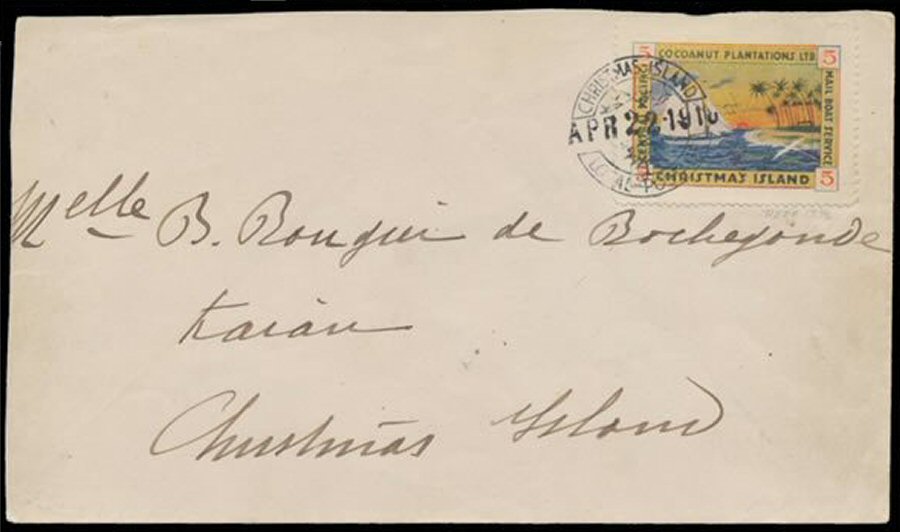 5 COCOANUT PLANTATIONS LTD 5
CENTRAL PACIFIC
MAIL BOAT SERVICE
CHRISTMAS ISLAND 5
CHRISTMAS ISLAND
APR 22 1916
LOCAL POST
Melle B. Rougier de Rochegonde
Kaiau
Christmas Island